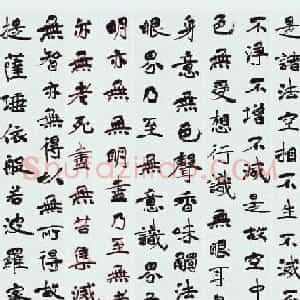 是諸法空相不生不
不淨不增不減是故空中
色無受想行識無眼耳
身意無色聲香味觸法
眼界乃至無意識界
明亦無無明盡乃至無
亦無老死盡無苦集滅
無智亦無得以無所得故
提薩埵依般若波羅